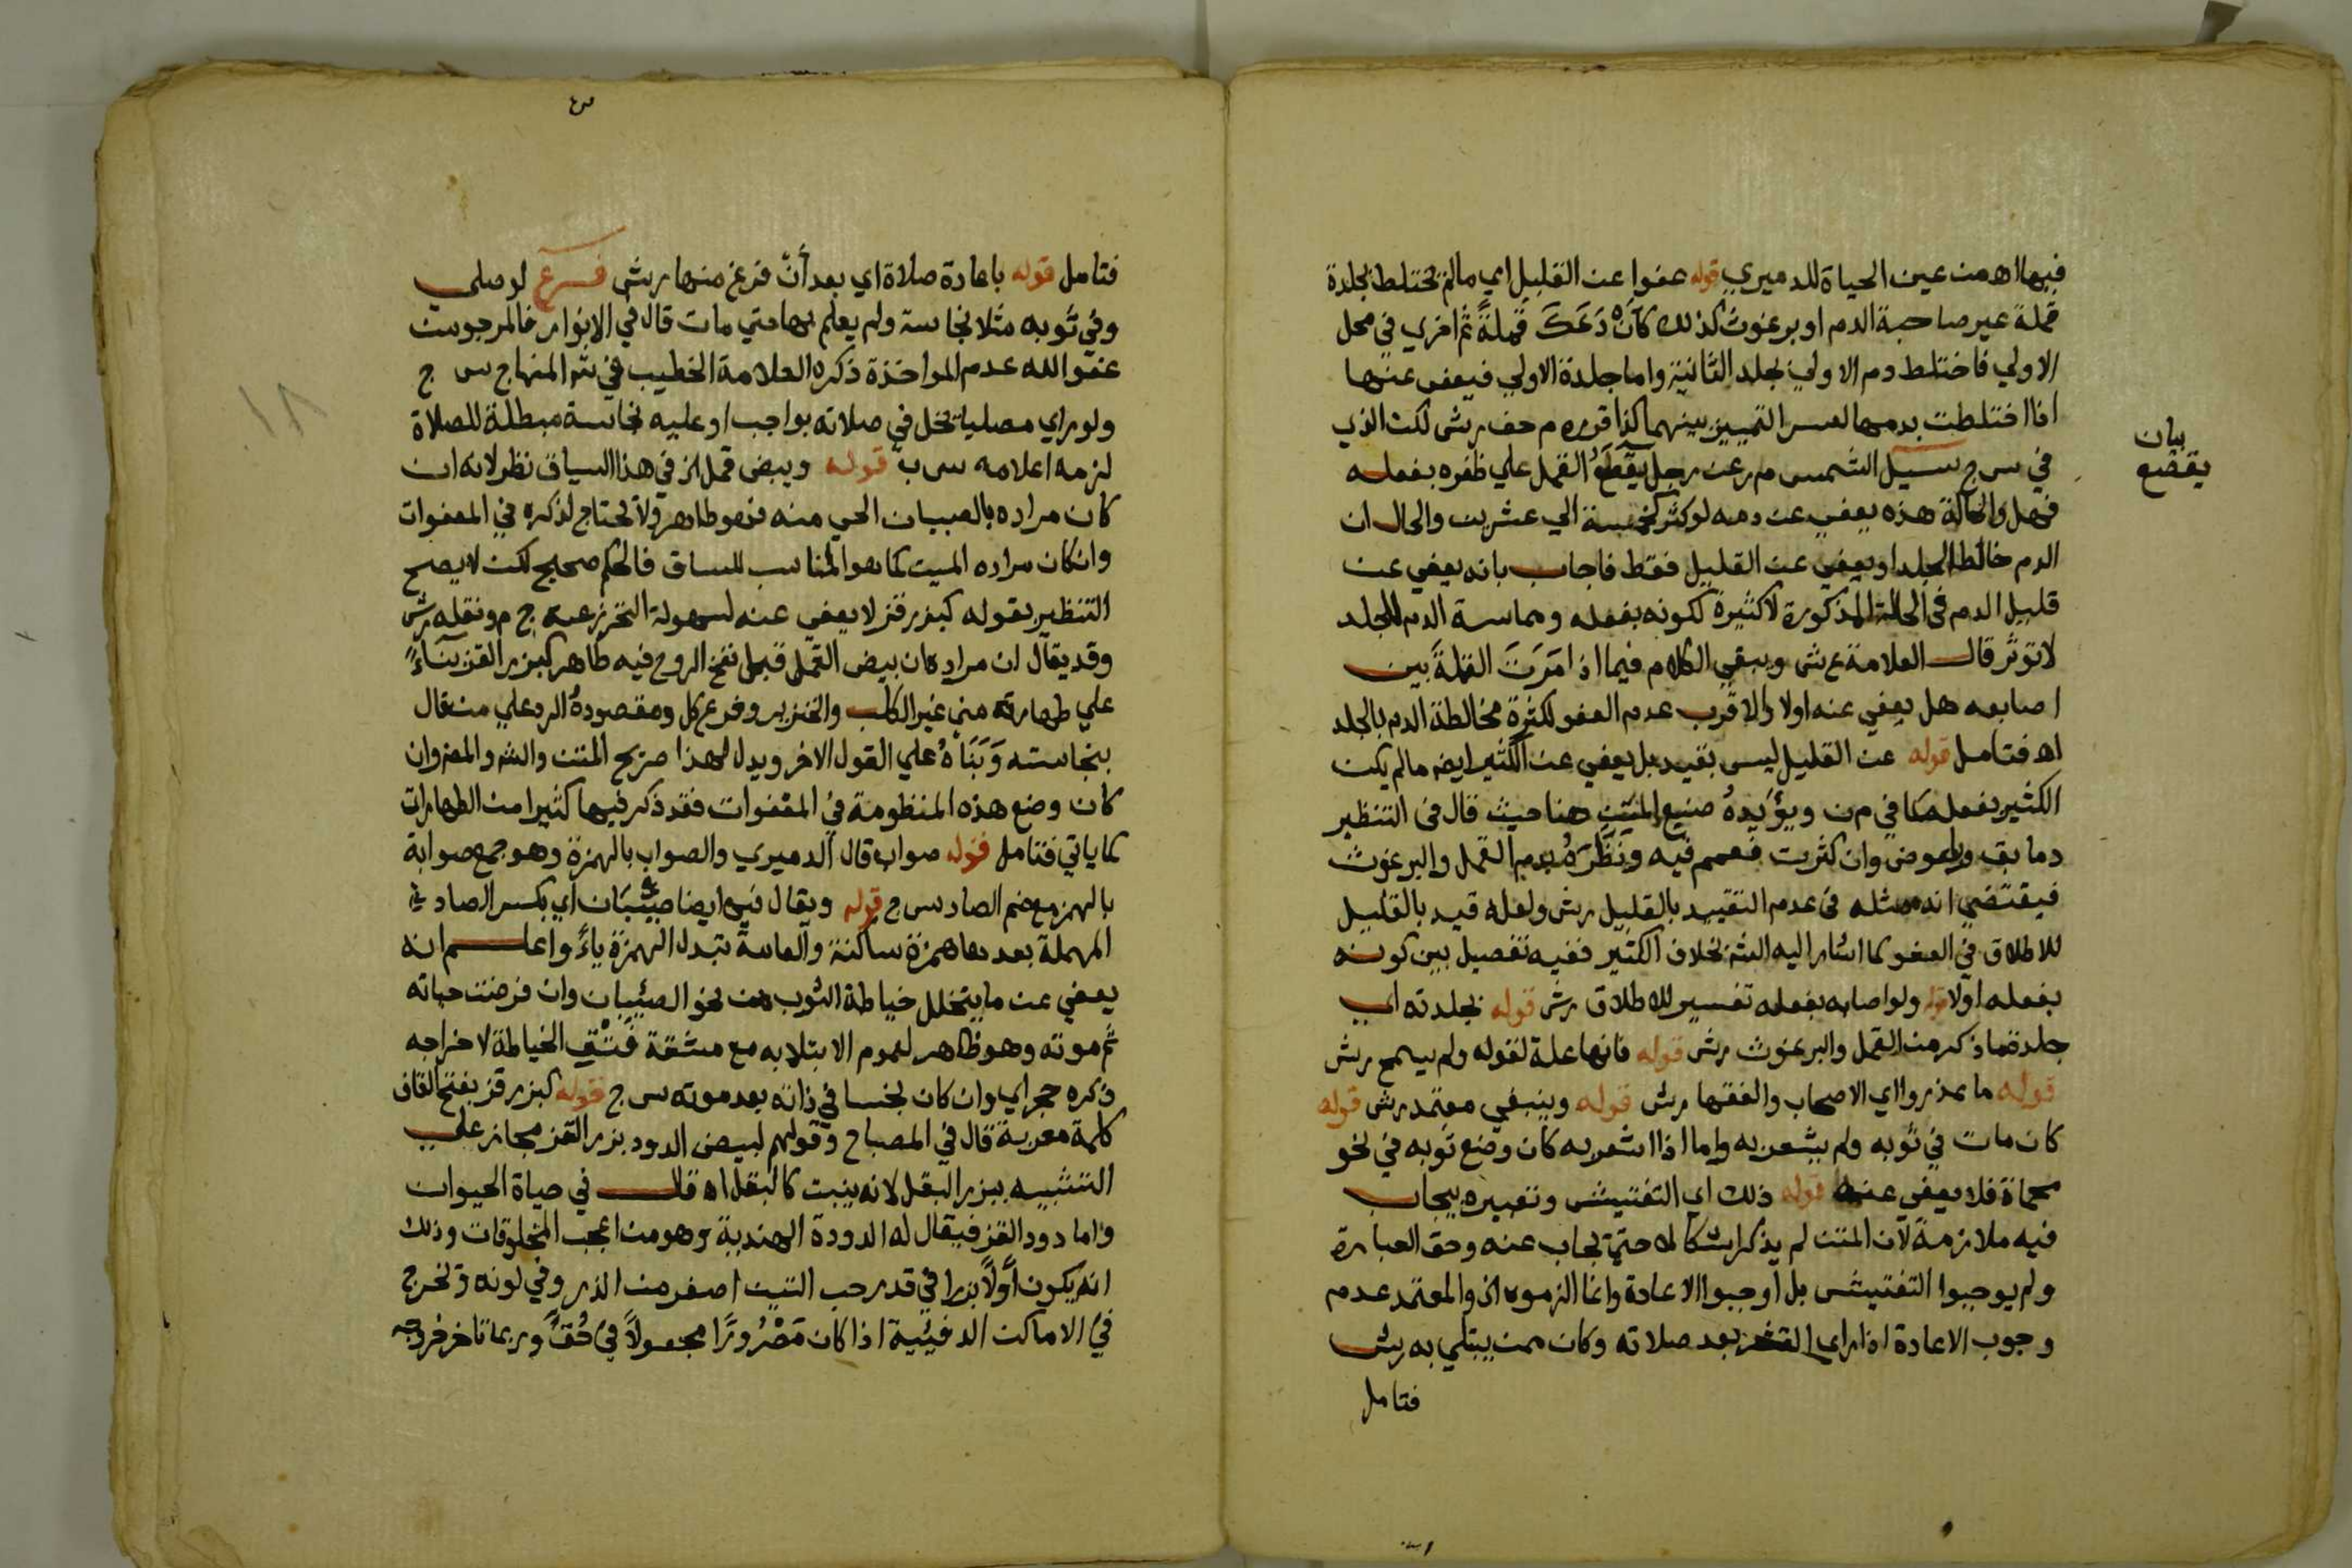 فيها اهـ من عين الحياة للدميري قوله عفوا عن القليل اي مالم تختلط بجلدة
قملة غير صاحبة الدم او برغوث كذلك كأن دَعَكَ قملةً ثم اخري في محل
الاولي فاختلط دم الاولي بجلد الثانية واما جلدة الاولي فيعفى عنها
اذا اختلطت بدمها لعسر التمييز بينهما كذا قرره م حف ربش لكن الذي
في س ج سيل الشمس م ر عن رجل يقطع القمل علي ظفره بفعله
بيان
يقصع
فهل والحالة هذه يعفي عن دمه لو كثر كخمسة الي عشرين والحال ان
الدم خالط الجلد او يعفي عن القليل فقط فاجاب بانه يعفي عن
قليل الدم في الحالة المذكورة لا كثيرة لكونه بفعله ومماسة الدم للجلد
لا توثر قال العلامة ع ش ويبقي الكلام فيما اذا مَرَتَ القملةَ بين
اصابعه هل يعفي عنه اولا والاقرب عدم العفو لكثرة مخالطة الدم بالجلد
اهـ فتامل قوله عن القليل ليس بقيد بل يعفي عن الكثير ايض مالم يكن
الكثير بفعله كما في م ن ويؤيدهُ صنيع المتن هنا حيث قال في التنظير
دما بق وبعوض وان كثرت فعمم فيه ونَظَّرهُ بدم القمل والبرغوث
فيقتضي انه مثله في عدم التقييد بالقليل ربش ولعله قيد بالقليل
للاطلاق في العفو كما اشار اليه الشه بخلاف الكثير ففيه تفصيل بين كونه
بفعله اولا قوله ولو اصابه بفعله تفسير للاطلاق ربش قوله بجلدته اي
جلدة ما ذكر من القمل والبرغوث ربش قوله فانها علة لقوله ولم يسمح ربش
قوله ما عذروا اي الاصحاب والفقها ربش قوله وينبغي معتمد ربش قوله
كان مات في ثوبه ولم يشعر به واما اذا اشعر به كان وضع ثوبه في نحو
محماة فلا يعفى عنه قوله ذلك اي التفتيش وتعبيره بيجاب
فيه ملازمة لان المتن لم يذكر اشكالا حتي يجاب عنه وحق العبارة
ولم يوجبوا التفتيش بل اوجبوا الاعادة وانما الزموه الخ والمعتمد عدم
وجوب الاعادة اذا راي القشر بعد صلاته وكان ممن يبتلي به ربش
فتامل
فتامل قوله باعادة صلاة اي بعد أنْ فرغ منها ربش فرع لو صلي
وفي ثوبه مثلا نجاسة ولم يعلم بها حتي مات قال في الانوار فالمرجو من
عفو الله عدم المواخذة ذكره العلامة الخطيب في شه المنهاج س ج
ولو راي مصليا يخل في صلاته بواجب او عليه نجاسة مبطلة للصلاة
لزمه اعلامه س ب قوله وبيض قمل الخ في هذا السياق نظر لانه ان
كان مراده بالصيبان الحي منه فهو طاهر ولا يحتاج لذكره في المعفوات
وان كان مراده الميت كما هو المناسب للسياق فالحكم صحيح لكن لا يصح
التنظير بقوله كبزر قز لا يعفي عنه لسهولة التحرز عنه ج م ونقله ربش
وقد يقال ان مراده ان بيض القمل قبل نفخ الروح فيه طاهر كبزر القز بناءً
علي طهارته مني غير الكلب والخنزير وفرع كل ومقصودهُ الرد علي من قال
بنجاسته وَبَنَاهُ علي القول الاخر ويدل لهذا صريح المتن والشه والعنوان
كان وضع هذه المنظومة في المعفوات فقد ذكر فيها كثيرا من الطهارات
كما ياتي فتامل قوله صواب قال الدميري والصواب بالهمزة وهو جمع صوابة
بالهمز مع ضم الصاد س ج قوله ويقال فيه ايضا صِئْبَان اي بكسر الصاد
المهملة بعدها همزة ساكنة والعامة تبدل الهمزة ياءً واعلم انه
يعفي عن ما يتخلل خياطة الثوب من نحو الصئيبان وان فرضت حياته
ثم موته وهو ظاهر لعموم الابتلا به مع مشقة فَتْقِ الخياطة لاخراجه
ذكره حجر اي وان كان نجسا في ذاته بعد موته س ج قوله كبزر قز بفتح القاف
كلمة معربة قال في المصباح وقولهم لبيض الدود بزر القز مجاز علي
التشبيه ببزر البقل لانه ينبت كالبقل اهـ قال في حياة الحيوان
واما دود القز فيقال له الدودة الهندية وهو من اعجب المخلوقات وذلك
انه يكون أوّلاً بزرا في قدر حب التين اصغر من الذر وفي لونه وتخرج
في الاماكن الدفيئة اذا كان مَصْرُورًا مجعولاً في حُقٍّ وربما تاخر خروجه
١٨